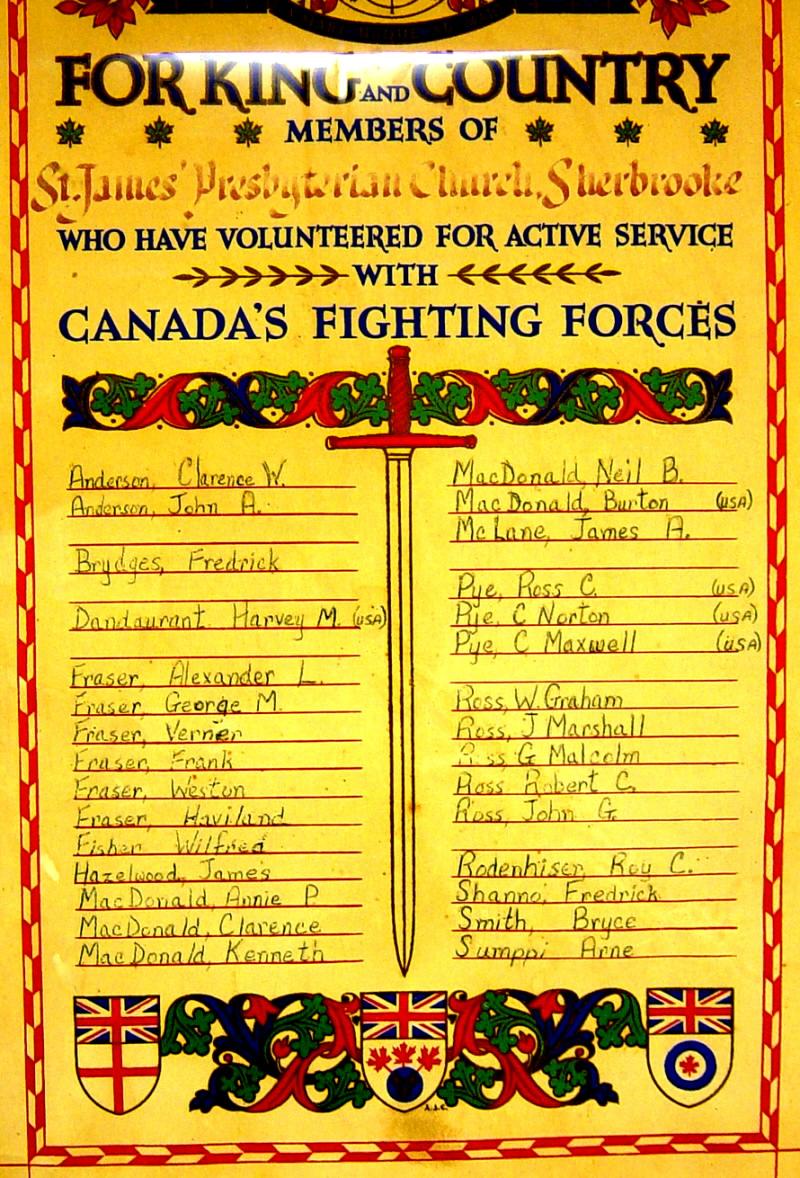 FOR KING AND COUNTRY
MEMBERS OF
St. James' Presbyterian Church, Sherbrooke
WHO HAVE VOLUNTEERED FOR ACTIVE SERVICE
WITH
CANADA'S FIGHTING FORCES
Anderson, Clarence W.
Anderson, John A.
Brydges, Fredrick
Dandaurant Harvey M. (USA)
Fraser, Alexander L.
Fraser, George M.
Fraser, Verner
Fraser, Frank
Fraser, Weston
Fraser, Haviland
Fisher Wilfred
Hazelwood, James
MacDonald, Annie P.
MacDonald, Clarence
MacDonald, Kenneth
MacDonald, Neil B.
MacDonald, Burton (USA)
McLane, James A.
Pye, Ross C. (USA)
Pye, C Norton (USA)
Pye, C Maxwell (USA)
Ross, W. Graham
Ross, J Marshall
Ross G Malcolm
Ross Robert C.
Ross, John G.
Rodenhiser, Roy C.
Fredrick
Smith, Bryce
Sumppi Arne
A.J.C.